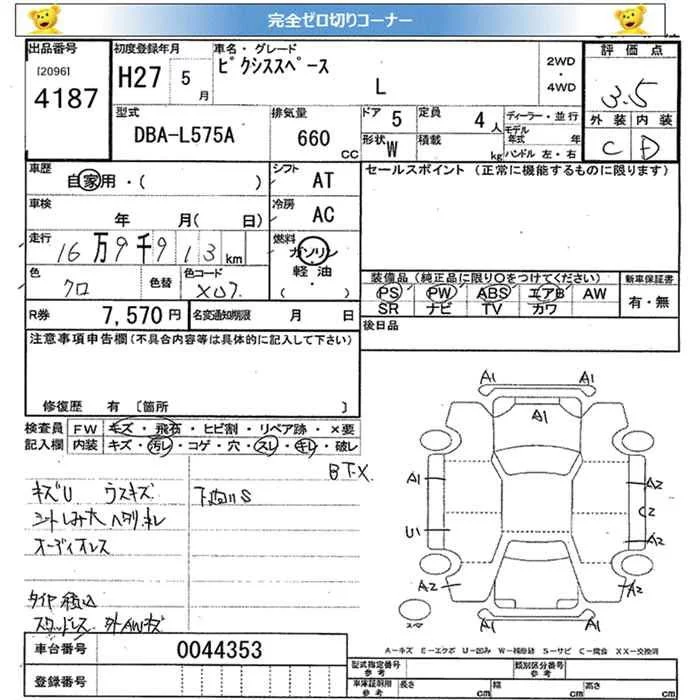 完全ゼロ切りコーナー
出品番号 初度登録年月 車名・グレード 評価点
[2096] 4187 H27 5月 ピクシススペース L 2WD・4WD 3.5
型式 排気量 ドア 5 定員 4人 ディーラー・並行 外装 内装
DBA-L575A 660CC 形状 W 積載 kg モデル年式 年 C D
ハンドル 左・右
車歴 自家用・( ) シフト AT セールスポイント(正常に機能するものに限ります)
車検 年 月( 日) 冷房 AC
走行 16万9千913km 燃料 ガソリン・軽油・( )
色 クロ 色替 色コード X07
装備品(純正品に限り○をつけてください) 新車保証書
PS PW ABS エアB AW 有・無
SR ナビ TV カワ
R券 7,570円 名変通知期限 月 日 後日品
注意事項申告欄(不具合内容等は具体的に記入して下さい)
修復歴 有 〔箇所 〕
検査員 FW キズ・飛石・ヒビ割・リペア跡・×要
記入欄 内装 キズ・汚レ・コゲ・穴・スレ・キレ・破レ
BT.X
キズU ウスキズ 下廻りS
シートしみ大 ヘタリ.ネレ
オーディオレス
タイヤ積込
スタッドレス 外AWキズ
A1 A1
A1
A1 A2
C2
U1 A2
A2 A2
スペア
A-キズ E-エクボ U-凹み W-補修跡 S-サビ C-腐食 XX-交換済
車台番号 0044353
登録番号
型式指定番号 参考 類別区分番号 参考
車庫証明用 参考 長さ cm 幅 cm 高さ cm